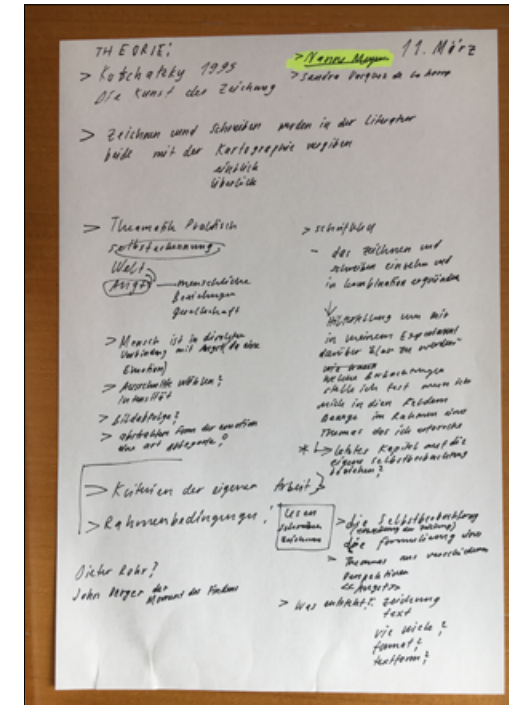 THEORIE:
11. März
> Koschatzky 1999
Die Kunst der Zeichnung
> Nanne Meyer
> Sandra
> Zeichnen und Schreiben werden in der Literatur
beide mit der Kartographie
> Thematik Praktisch
Selbsterkennung
Welt
Angst
menschliche
Beziehungen
Gesellschaft
> Mensch ist in direkter
Verbindung mit Angst (da eine
Emotion)
> Ausschnitte wählen?
Intensität
> Bildabfolge?
> abstraktere Form der emotion
eine art
> schriftlich
- das zeichnen und
schreiben einzeln und
in kombination ergründen
um mir
in meinem Experiment
darüber klar zu werden
wie
welche Beobachtungen
stelle ich fest wenn ich
mich in diesen Feldern
bewege im Rahmen eines
Themas das ich erforsche
* letztes Kapitel auf die
eigene selbstbeobachtung
beziehen?
> Kriterien der eigenen Arbeit
> Rahmenbedingungen!
Lesen
Schreiben
Zeichnen
> die Selbstbeobachtung
die formulierung eines
Themas aus verschiedenen
Perspektiven
Dieter Rohr?
John Berger der
Moment des Findens
> Was entsteht? Zeichnung
text
wie viele?
format?
textform?